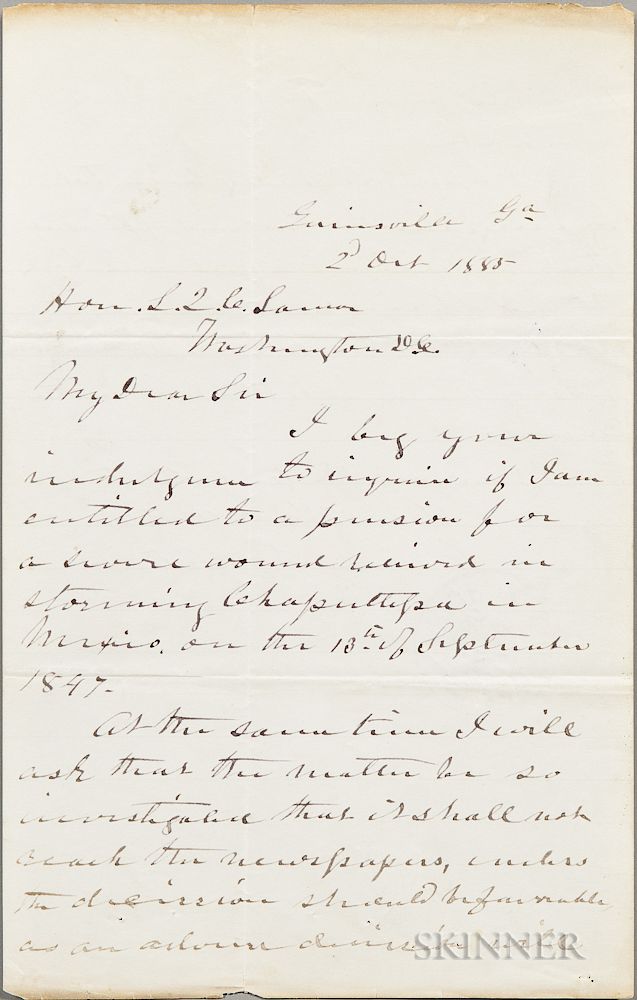 Gainsville Ga
2d Oct 1885
Hon. L. Q. C. Lamar
Washington D.C.
My Dear Sir
I beg your
indulgence to inquire if I am
entitled to a pension for
a severe wound received in
storming Chapultepec in
Mexico, on the 13th of September
1847.
At the same time I will
ask that the matter be so
investigated that it shall not
reach the newspapers, unless
the decission should be favorable,
as an adverse decission will
SKINNER